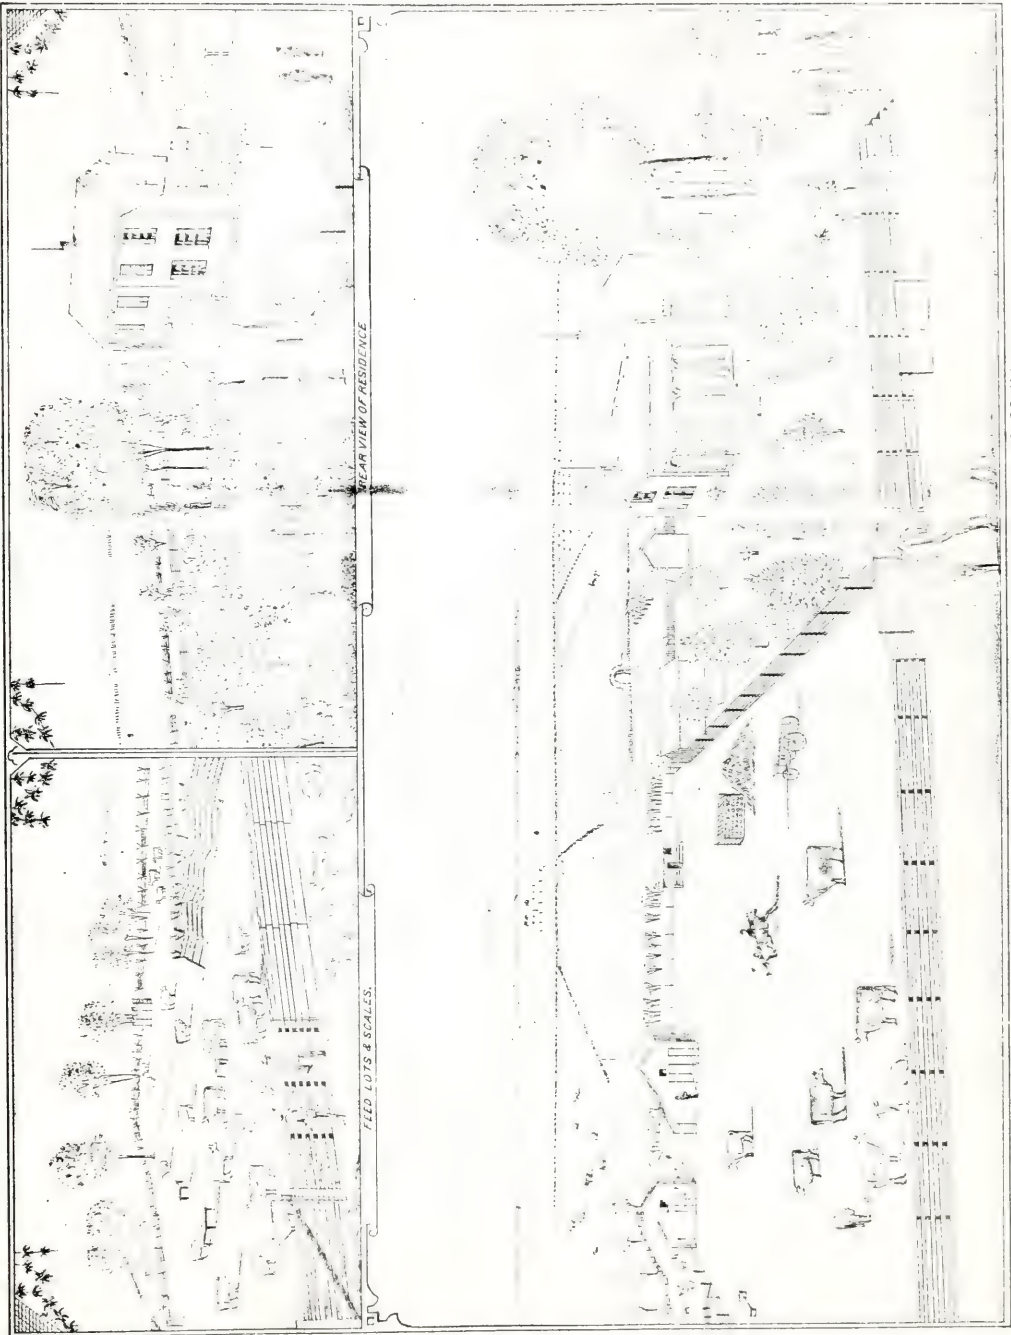 FEED LOTS & SCALES.
REAR VIEW OF RESIDENCE